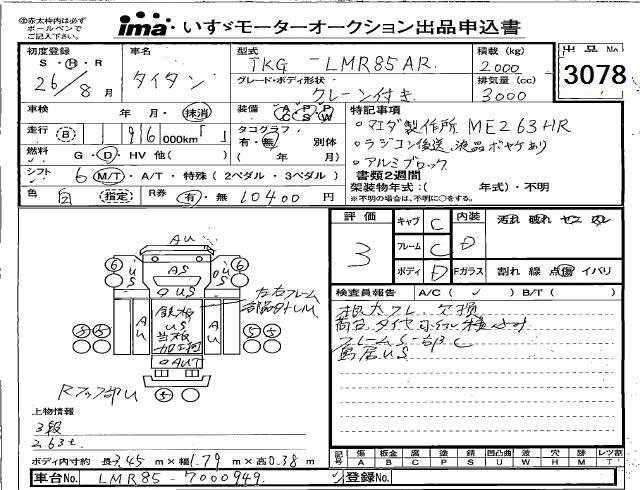 ⑰赤太枠内は必ず
ボールペンで
ご記入ください。
ima いすゞモーターオークション出品申込書
初度登録 車名 型式 積載(kg) 出品No
S・H・R
26/8月 タイタン TKG-LMR85AR 2000 3078
グレード・ボディ形状 排気量(cc)
クレーン付き 3000
車検 年 月・抹消 装備 AC PS PW 特記事項
走行 B 196 000km「 」 タコグラフ 別体 有・無
・マエダ製作所 ME263HR
燃料 G・D・HV 他( ) ( 年 月)
・ラジコン後送、液晶ボヤケあり
・アルミブロック
シフト 6 M/T・A/T・特殊(2ペダル・3ペダル) 書類2週間
架装物年式:( 年式)・不明
色 白 指定 R券 有・無 10400円
※不明の場合は、不明に○をする。
評価 3
キャブ C 内装 D 汚れ 破れ
フレーム C
ボディ D Fガラス 割れ 線 点傷 イバリ
検査員報告 A/C( ✓ ) B/T( )
荷台
フレームS一部C
鳥居US
AU
6 US AS US 6
○US
左右フレーム
AU 鉄板 US 当板 加工 AU
5 5 5 5
AUT
5
上物情報
3段
2.63t
ボディ内寸約 長3.45m×幅1.79m×高0.38m
記号 傷 A 板金 B 腐 C 塗 P 錆 S 凹凸曲 U 波 W 穴 H 跡 M レツ割 T
車台No. LMR85-7000949 登録No.